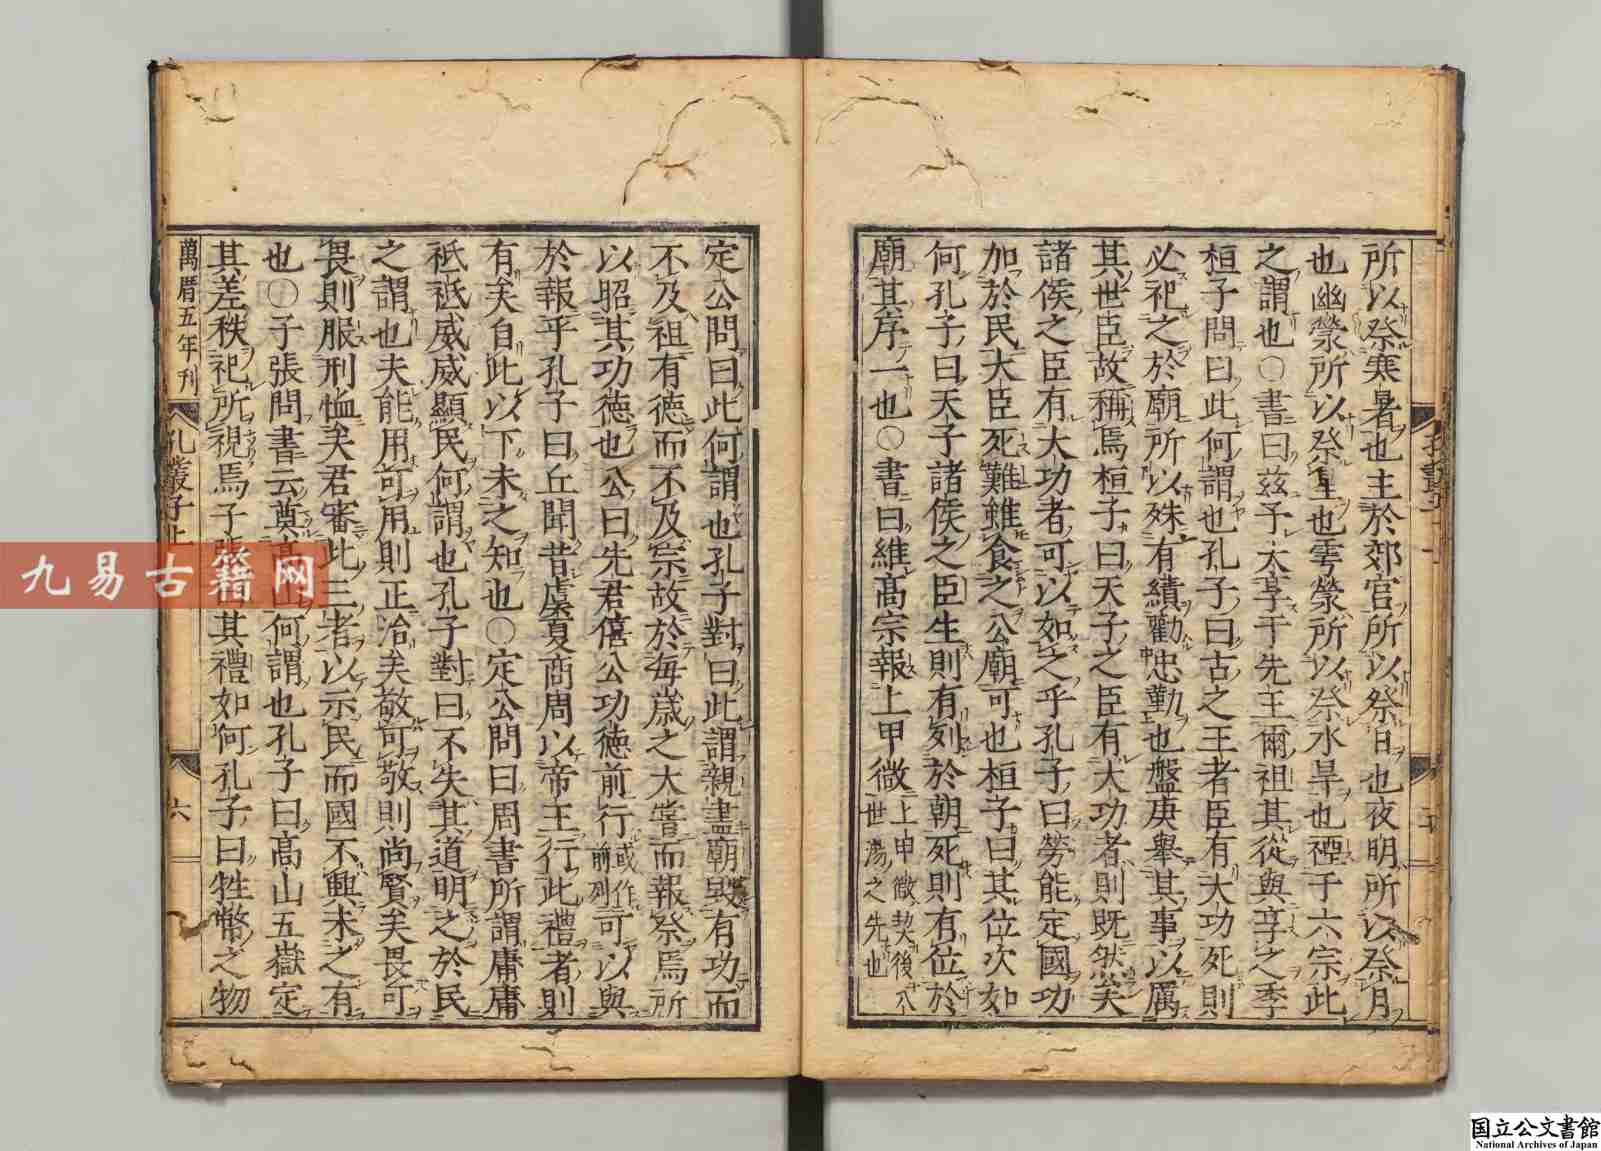 所以祭寒暑也主於郊宮所以祭日也夜明所以祭月
也幽禜所以祭星也雩禜所以祭水旱也禋于六宗此
之謂也○書曰兹予大享于先王爾祖其從與享之季
桓子問曰此何謂也孔子曰古之王者臣有大功死則
必祀之於廟所以殊有績勸忠勤也盤庚舉其事以厲
其世臣故稱焉桓子曰天子之臣有大功者則既然矣
諸侯之臣有大功者可以如之乎孔子曰勞能定國功
加於民大臣死難雖食之公廟可也桓子曰其位次如
何孔子曰天子諸侯之臣生則有列於朝死則有位於
廟其序一也○書曰維高宗報上甲微上甲微契後八世湯之先也
定公問曰此何謂也孔子對曰此謂親盡廟毀有功而
不及祖有德而不及宗故於每歲之大嘗而報祭焉所
以昭其功德也公曰先君僖公功德前行或作前列可以與
於報乎孔子曰丘聞昔虞夏商周以帝王行此禮者則
有矣自此以下未之知也○定公問曰周書所謂庸庸
祗祗威威顯民何謂也孔子對曰不失其道明之於民
之謂也夫能用可用則正治矣敬可敬則尚賢矣畏可
畏則服刑恤矣君審此三者以示民而國不興未之有
也○子張問書云奠高山何謂也孔子曰高山五嶽定
其差秩祀所視焉子張曰其禮如何孔子曰牲幣之物
萬曆五年刊 孔叢子上 六
九易古籍网
国立公文書館
National Archives of Japan